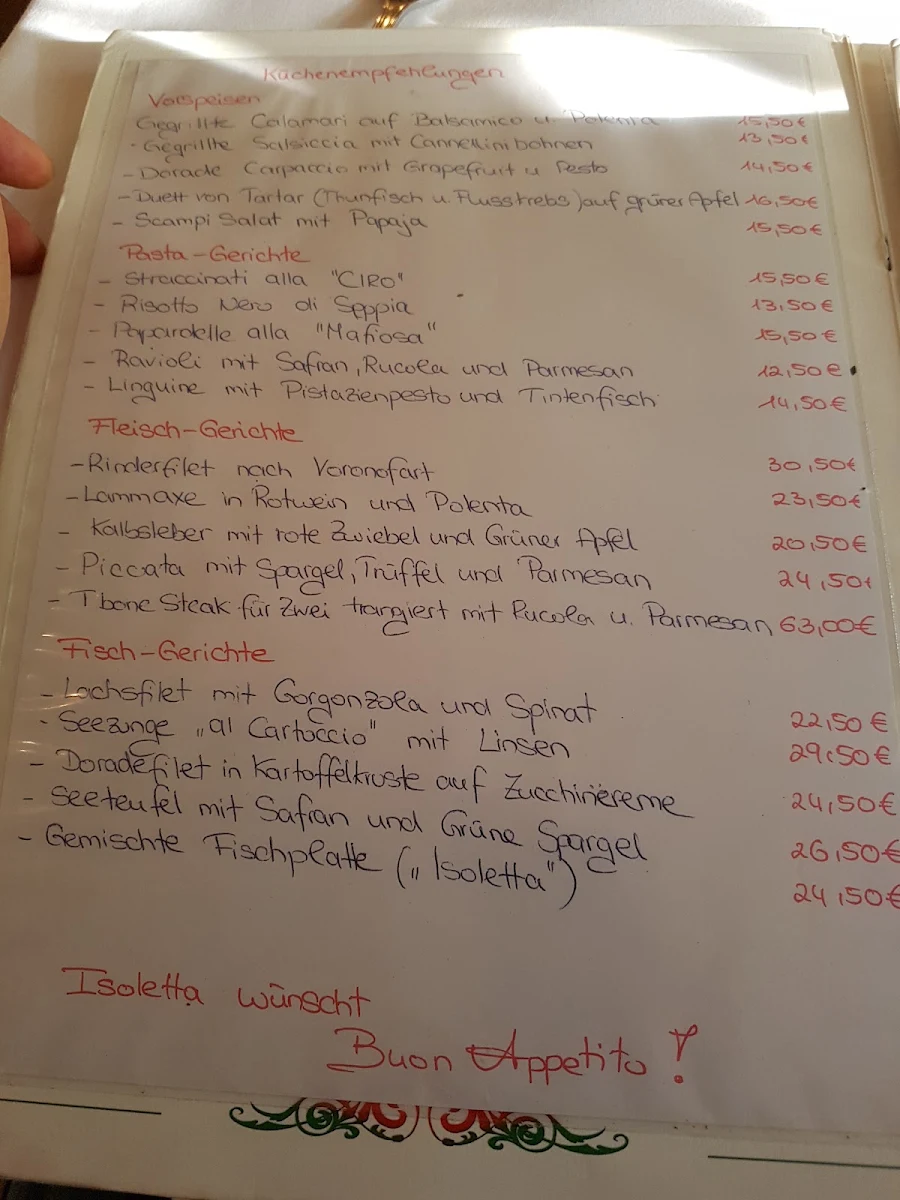 Küchenempfehlungen
Vorspeisen
Gegrillte Calamari auf Balsamico u. Polenta 15,50€
- Gegrillte Salsiccia mit Cannellinibohnen 13,50€
- Dorade Carpaccio mit Grapefruit u Pesto 14,50€
- Duett von Tartar (Thunfisch u. Flusskrebs) auf grüner Apfel 16,50€
- Scampi Salat mit Papaja 15,50€
Pasta-Gerichte
- Straccinati alla "CIRO" 15,50€
- Risotto Nero di Seppia 13,50€
- Papardelle alla "Mafiosa" 15,50€
- Ravioli mit Safran, Rucola und Parmesan 12,50€
- Linguine mit Pistazienpesto und Tintenfisch 14,50€
Fleisch-Gerichte
- Rinderfilet nach Voronofart 30,50€
- Lammaxe in Rotwein und Polenta 23,50€
- Kalbsleber mit rote Zwiebel und Grüner Apfel 20,50€
- Piccata mit Spargel, Trüffel und Parmesan 24,50€
- T bone Steak für Zwei trangiert mit Rucola u. Parmesan 63,00€
Fisch-Gerichte
- Lachsfilet mit Gorgonzola und Spinat 22,50€
- Seezunge „al Cartoccio" mit Linsen 29,50€
- Doradefilet in Kartoffelkruste auf Zucchinicreme 24,50€
- Seeteufel mit Safran und Grüne Spargel 26,50€
- Gemischte Fischplatte („Isoletta") 24,50€
Isoletta wünscht
Buon Appetito!